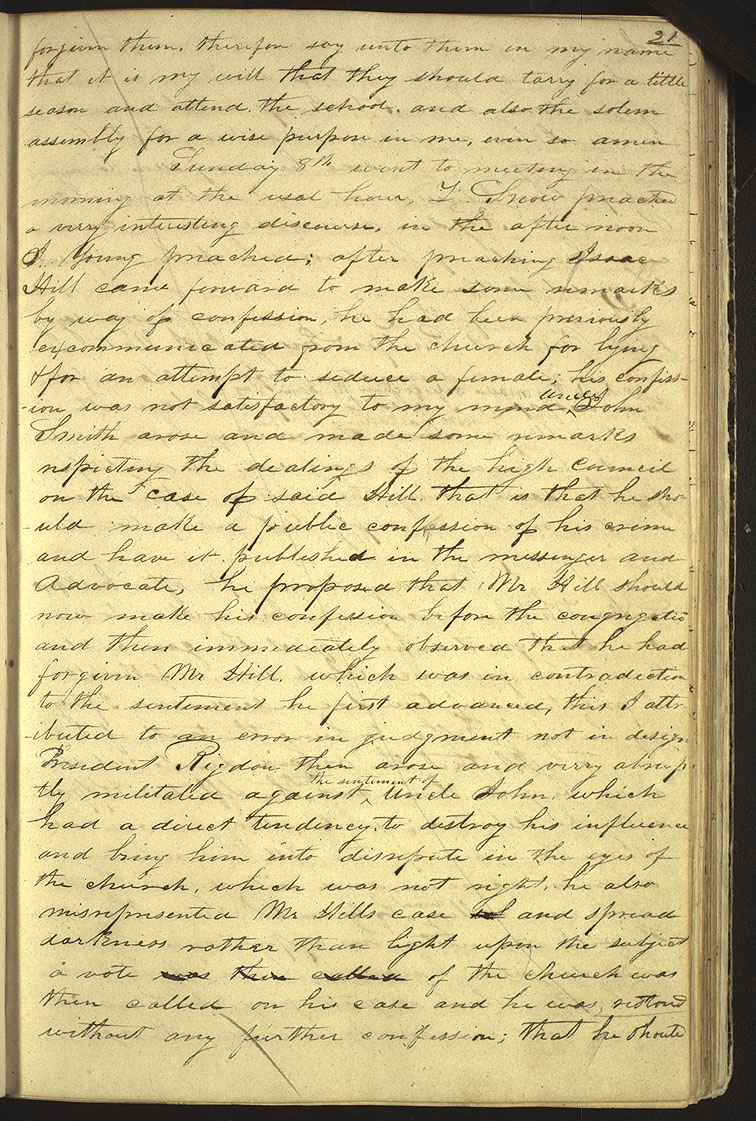 21
forgiven them, therefore say unto them in my name
that it is my will that they should tarry for a little
season and attend the school, and also the solem
assembly for a wise purpose in me, even so amen
Sunday 8th went to meeting in the
morning at the usal hour, Z. Snow preached
a verry interesting discourse, in the after noon
J. Young preached; after preaching Isaac
Hill came forward to make some remarks
by way of confession, he had been previously
excommunicated from the church for lying
& for an attempt to seduce a female; his confess-
-ion was not satisfactory to my mind uncle John
Smith arose and made some remarks
respecting the dealings of the high council
on the case of said Hill, that is that he sho-
-uld make a public confession of his crime
and have it published in the messenger and
Advocate, he proposed that Mr Hill should
now make his confession before the congregatio
and then immediately observed that he had
forgiven Mr Hill, which was in contradiction
to the sentiment he first advanced, this I attr-
-ibuted to an error in judgment not in design
President Rigdon then arose and verry abrup-
tly militated against the sentiment of Uncle John, which
had a direct tendency to destroy his influence
and bring him into disrepute in the eyes of
the church, which was not right, he also
misrepresented Mr Hills case and spread
darkness rather than light upon the subject
a vote was then called of the church was
then called on his case and he was restored
without any further confession; that he should